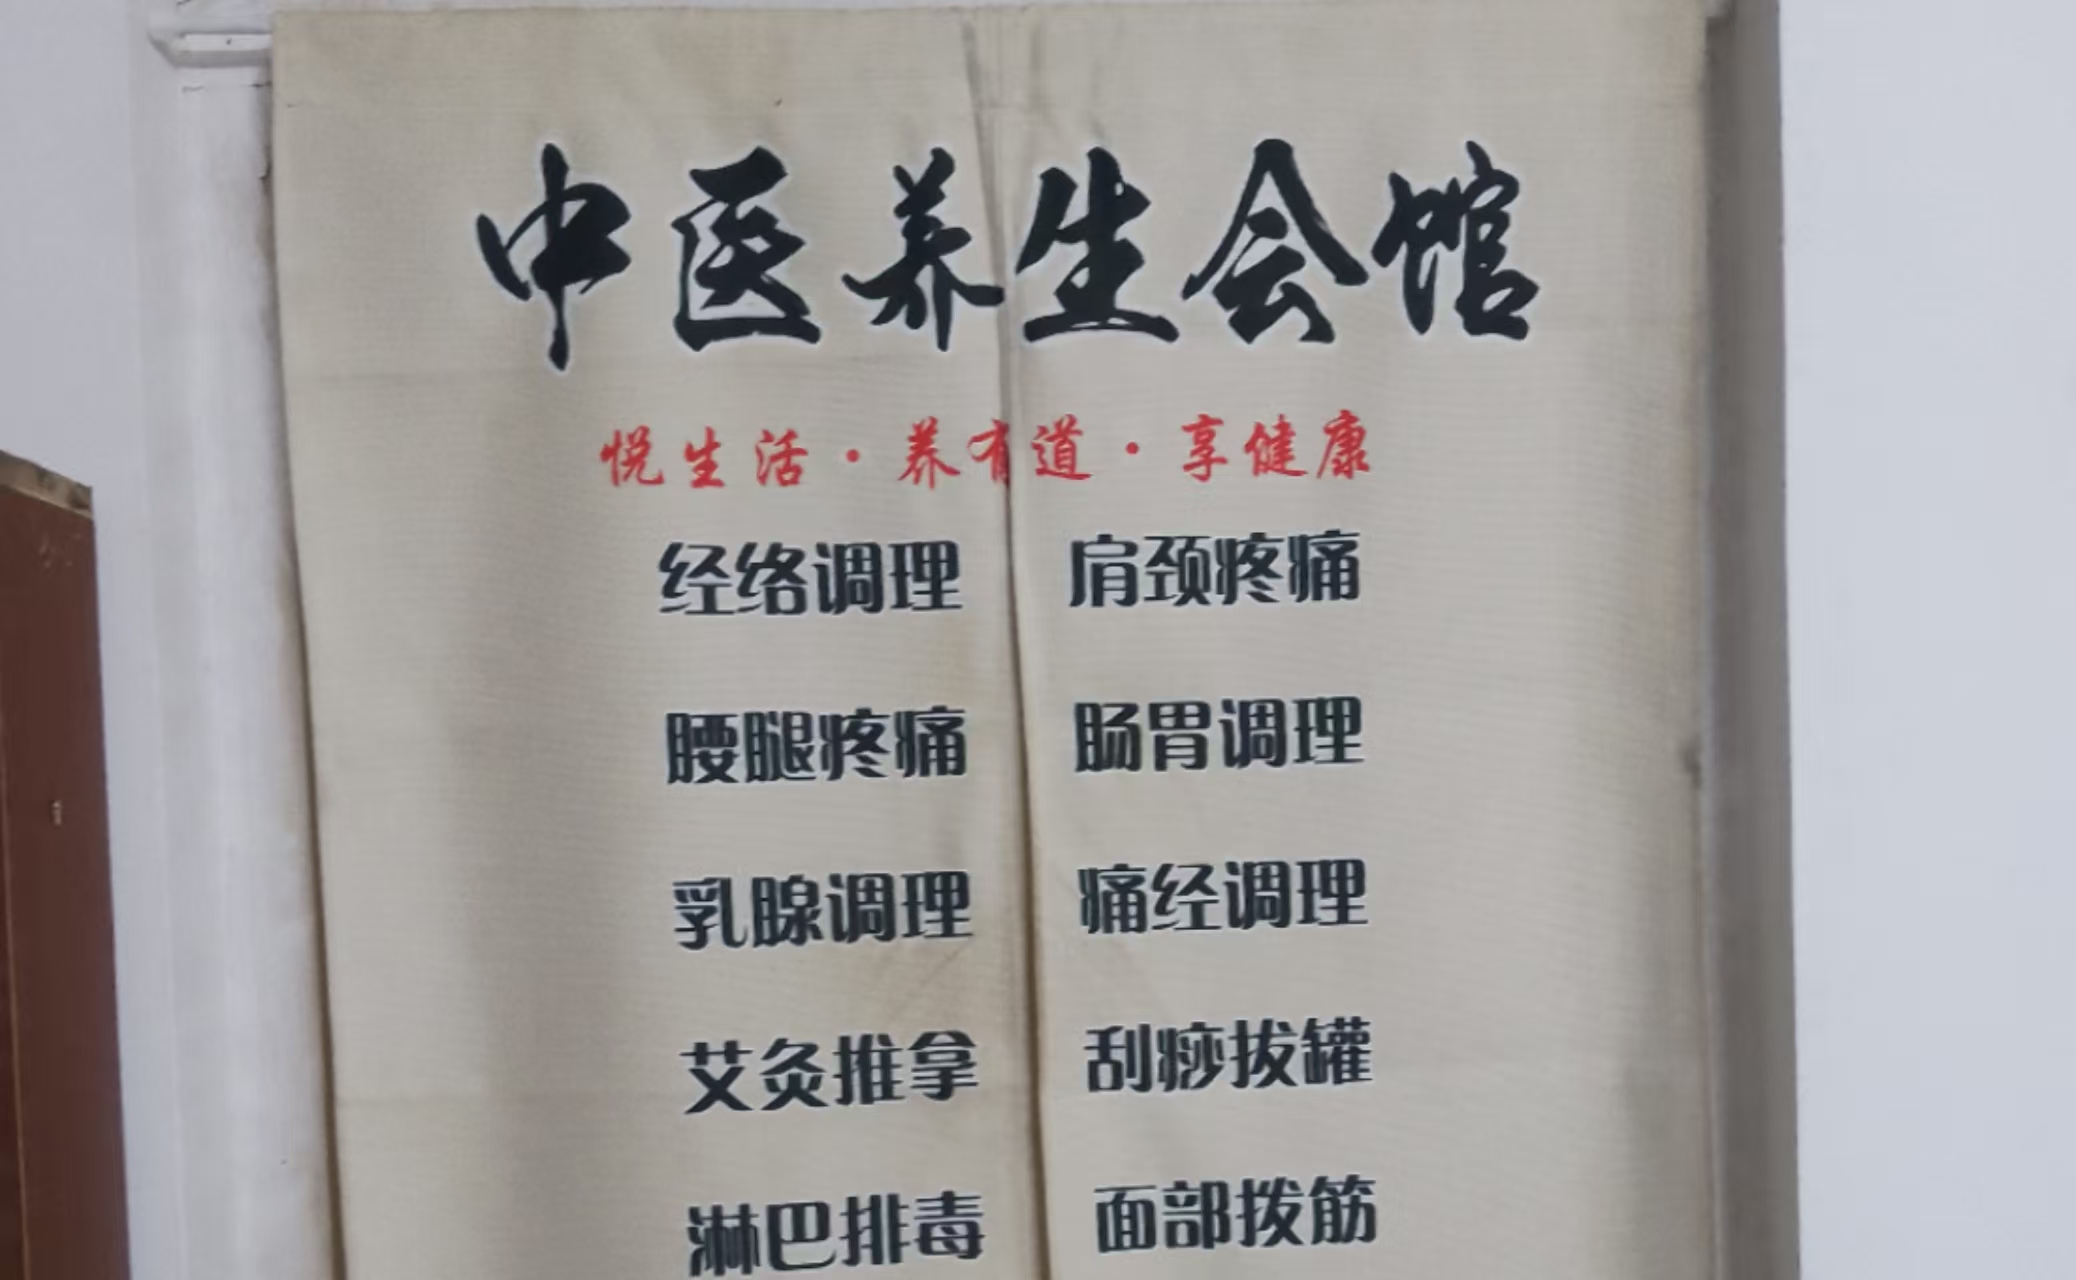 中医养生会馆
悦生活·养有道·享健康
经络调理 肩颈疼痛
腰腿疼痛 肠胃调理
乳腺调理 痛经调理
艾灸推拿 刮痧拔罐
淋巴排毒 面部拨筋